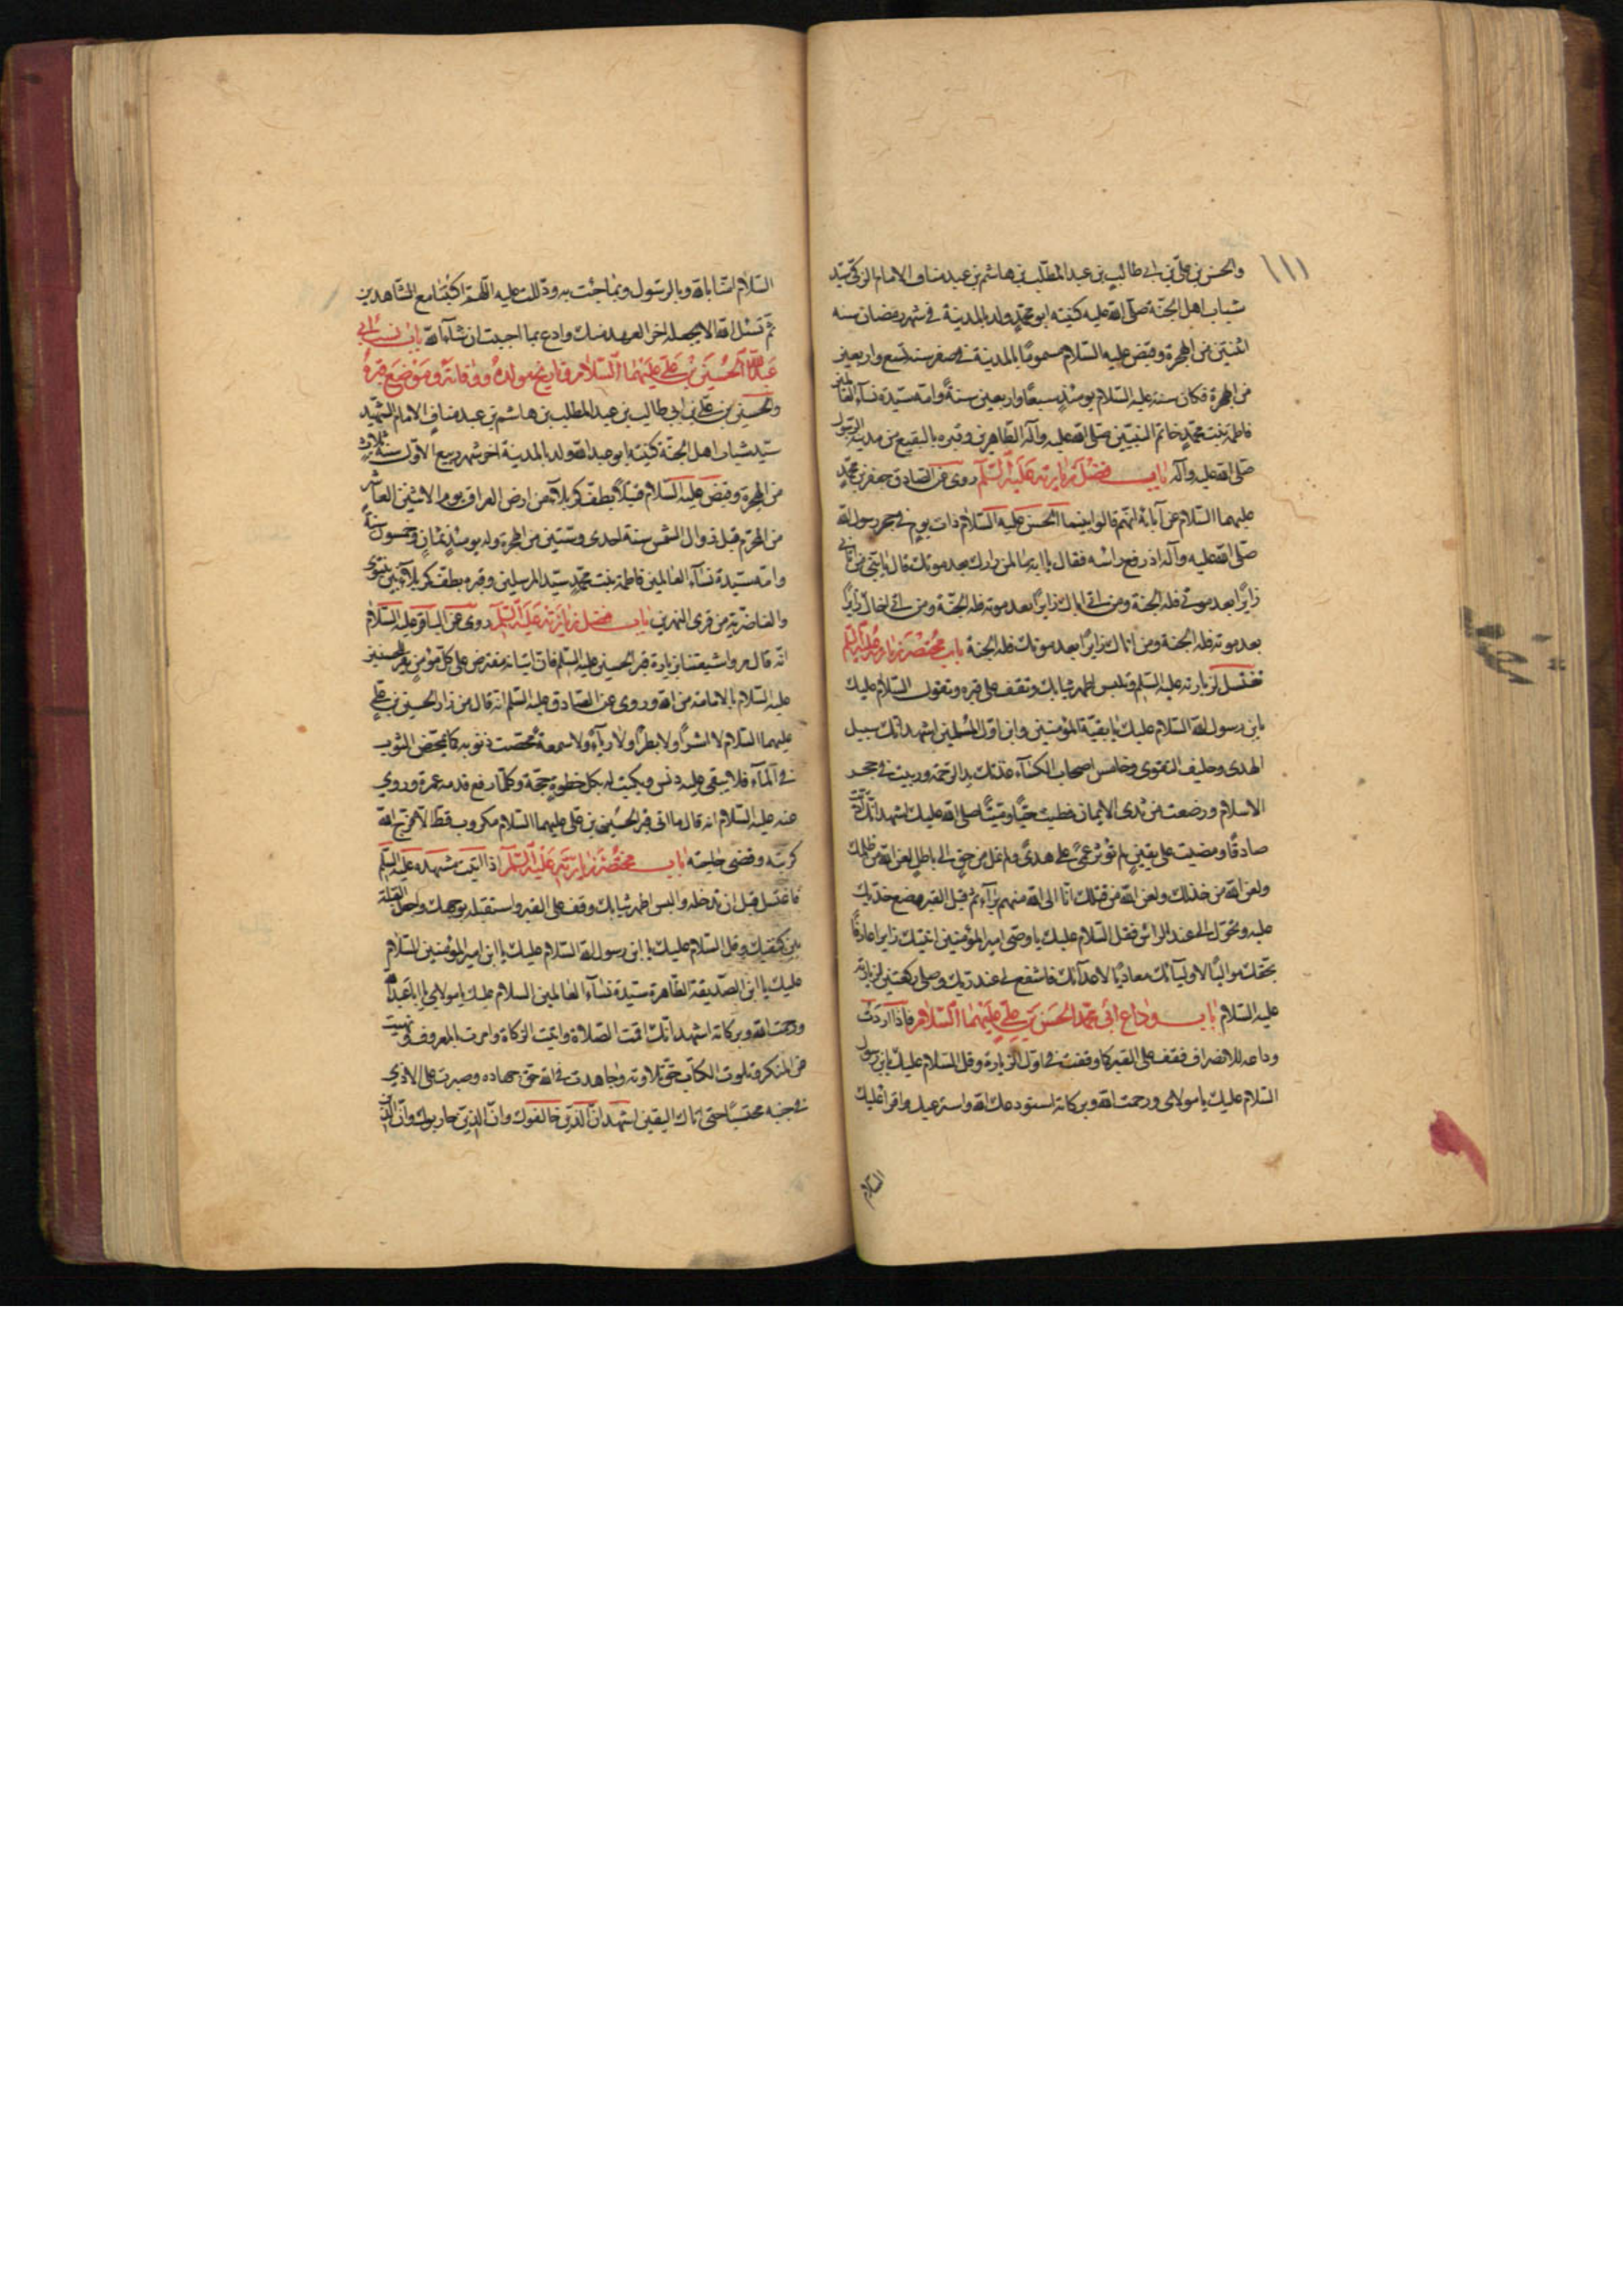 والحسن بن علي بن ابي طالب بن عبد المطلب بن هاشم بن عبد مناف الامام الزكي سيد
شباب اهل الجنة صلى الله عليه كنيته ابو محمد ولد بالمدينة في شهر رمضان سنه
اثنتين من الهجرة وقبض عليه السلام مسموما بالمدينة في صفر سنه تسع واربعين
من الهجرة فكان سنه عليه السلام يومئذ سبعا واربعين سنة وامه سيدة نسآء العالمين
فاطمة بنت محمد خاتم النبيين صلى الله عليه وآله الطاهرين وقبره بالبقيع من مدينة الرسول
صلى الله عليه وآله باب فضل زيارته عليه السلم روى عن الصادق جعفر بن محمد
عليهما السلام عن آبائه انهم قالوا بينما الحسن عليه السلام ذات يوم في حجر رسول الله
صلى الله عليه وآله اذ رفع راسه فقال يا ابه ما لمن زارك بعد موتك قال يا بني من اتاني
زايرا بعد موتي فله الجنة ومن اتى اباك زايرا بعد موته فله الجنة ومن اتى اخاك زايرا
بعد موته فله الجنة ومن اتاك زايرا بعد موتك فله الجنة باب مختصر زيارته عليه السلم
تغتسل لزيارته عليه السلم وتلبس اطهر ثيابك وتقف على قبره وتقول السلام عليك
يابن رسول الله السلام عليك يا بقية المؤمنين وابن اول المسلمين اشهد انك سبيل
الهدى وحليف التقوى وخامس اصحاب الكسآء غذتك يد الرحمة وربيت في حجر
الاسلام ورضعت من ثدى الايمان فطبت حيا وميتا صلى الله عليك اشهد انك اديت
صادقا ومضيت على يقين لم تؤثر عمى على هدى ولم تمل من حق الى باطل لعن الله من ظلمك
ولعن الله من خذلك ولعن الله من قتلك انا الى الله منهم برآء ثم قبل القبر وضع خديك
عليه وتحول الى عند الراس فقل السلام عليك يا وصى امير المؤمنين اتيتك زايرا عارفا
بحقك مواليا لاوليآئك معاديا لاعدآئك فاشفع لي عند ربك وصلى ركعتين لزيارته
عليه السلام باب وداع ابي محمد الحسن بن علي عليهما السلام فاذا اردت
وداعه للانصراف فقف على القبر كما وقفت في اول الزيارة وقل السلام عليك يابن رسول
السلام عليك يا مولاى ورحمت الله وبركاته استودعك الله واسترعيك واقرا عليك
السلام
السلام امنا بالله وبالرسول وبما جئت به ودللت عليه اللهم اكتبنا مع الشاهدين
ثم تسئل الله الا يجعله اخر العهد منك وادع بما احببت ان شآء الله باب نسب ابي
عبد الله الحسين بن علي عليهما السلام وتاريخ مولده ووفاته وموضع قبره
والحسين بن علي بن ابي طالب بن عبد المطلب بن هاشم بن عبد مناف الامام الشهيد
سيد شباب اهل الجنة كنيته ابو عبد الله ولد بالمدينة اخر شهر ربيع الاول سنة ثلاث
من الهجرة وقبض عليه السلام قتيلا بطف كربلآء من ارض العراق يوم الاثنين العاشر
من المحرم قبل زوال الشمس سنة احدى وستين من الهجرة وله يومئذ ثمان وخمسون سنة
وامه سيدة نسآء العالمين فاطمة بنت محمد سيد المرسلين وقبره بطف كربلآء بين نينوى
والغاضرية من قرى النهرين باب فضل زيارته عليه السلم روى عن الباقر عليه السلام
انه قال مروا شيعتنا بزيارة قبر الحسين عليه السلم فان اتيانه مفترض على كل مؤمن يقر للحسين
عليه السلام بالامامة من الله وروى عن الصادق عليه السلم انه قال من زار الحسين بن علي
عليهما السلام لا اشرا ولا بطرا ولا ريآء ولا سمعة محصت ذنوبه كما يمحض الثوب
في المآء فلا يبقى عليه دنس ويكتب له بكل خطوة حجة وكلما رفع قدمه عمرة وروي
عنه عليه السلام انه قال ما اتى قبر الحسين بن علي عليهما السلام مكروب قط الا فرج الله
كربته وقضى حاجته باب مختصر زيارته عليه السلم اذا اتيت مشهده عليه السلم
فاغتسل قبل ان تدخله والبس اطهر ثيابك وقف على القبر واستقبله بوجهك واجعل القبلة
بين كتفيك وقل السلام عليك يا ابن رسول الله السلام عليك يا ابن امير المؤمنين السلام
عليك يا ابن الصديقة الطاهرة سيدة نسآء العالمين السلام عليك يا مولاى يا ابا عبد الله
ورحمت الله وبركاته اشهد انك اقمت الصلاة واتيت الزكاة وامرت بالمعروف ونهيت
عن المنكر وتلوت الكتاب حق تلاوته وجاهدت في الله حق جهاده وصبرت على الاذي
في جنبه محتسبا حتى اتاك اليقين اشهد ان الذين خالفوك وان الذين حاربوك وان الذين